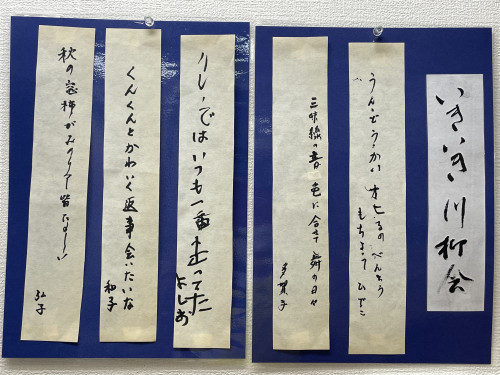 いきいき川柳会
うんどうかい オヒるのべんとう
もちよって ひでこ
三味線の音色に合せて舞の日々
多賀子
リレーではいつも一番走ってた
よしお
くんくんとかわいく返事会いたいな
和子
秋の窓柿がみのりて皆たのしい
弘子